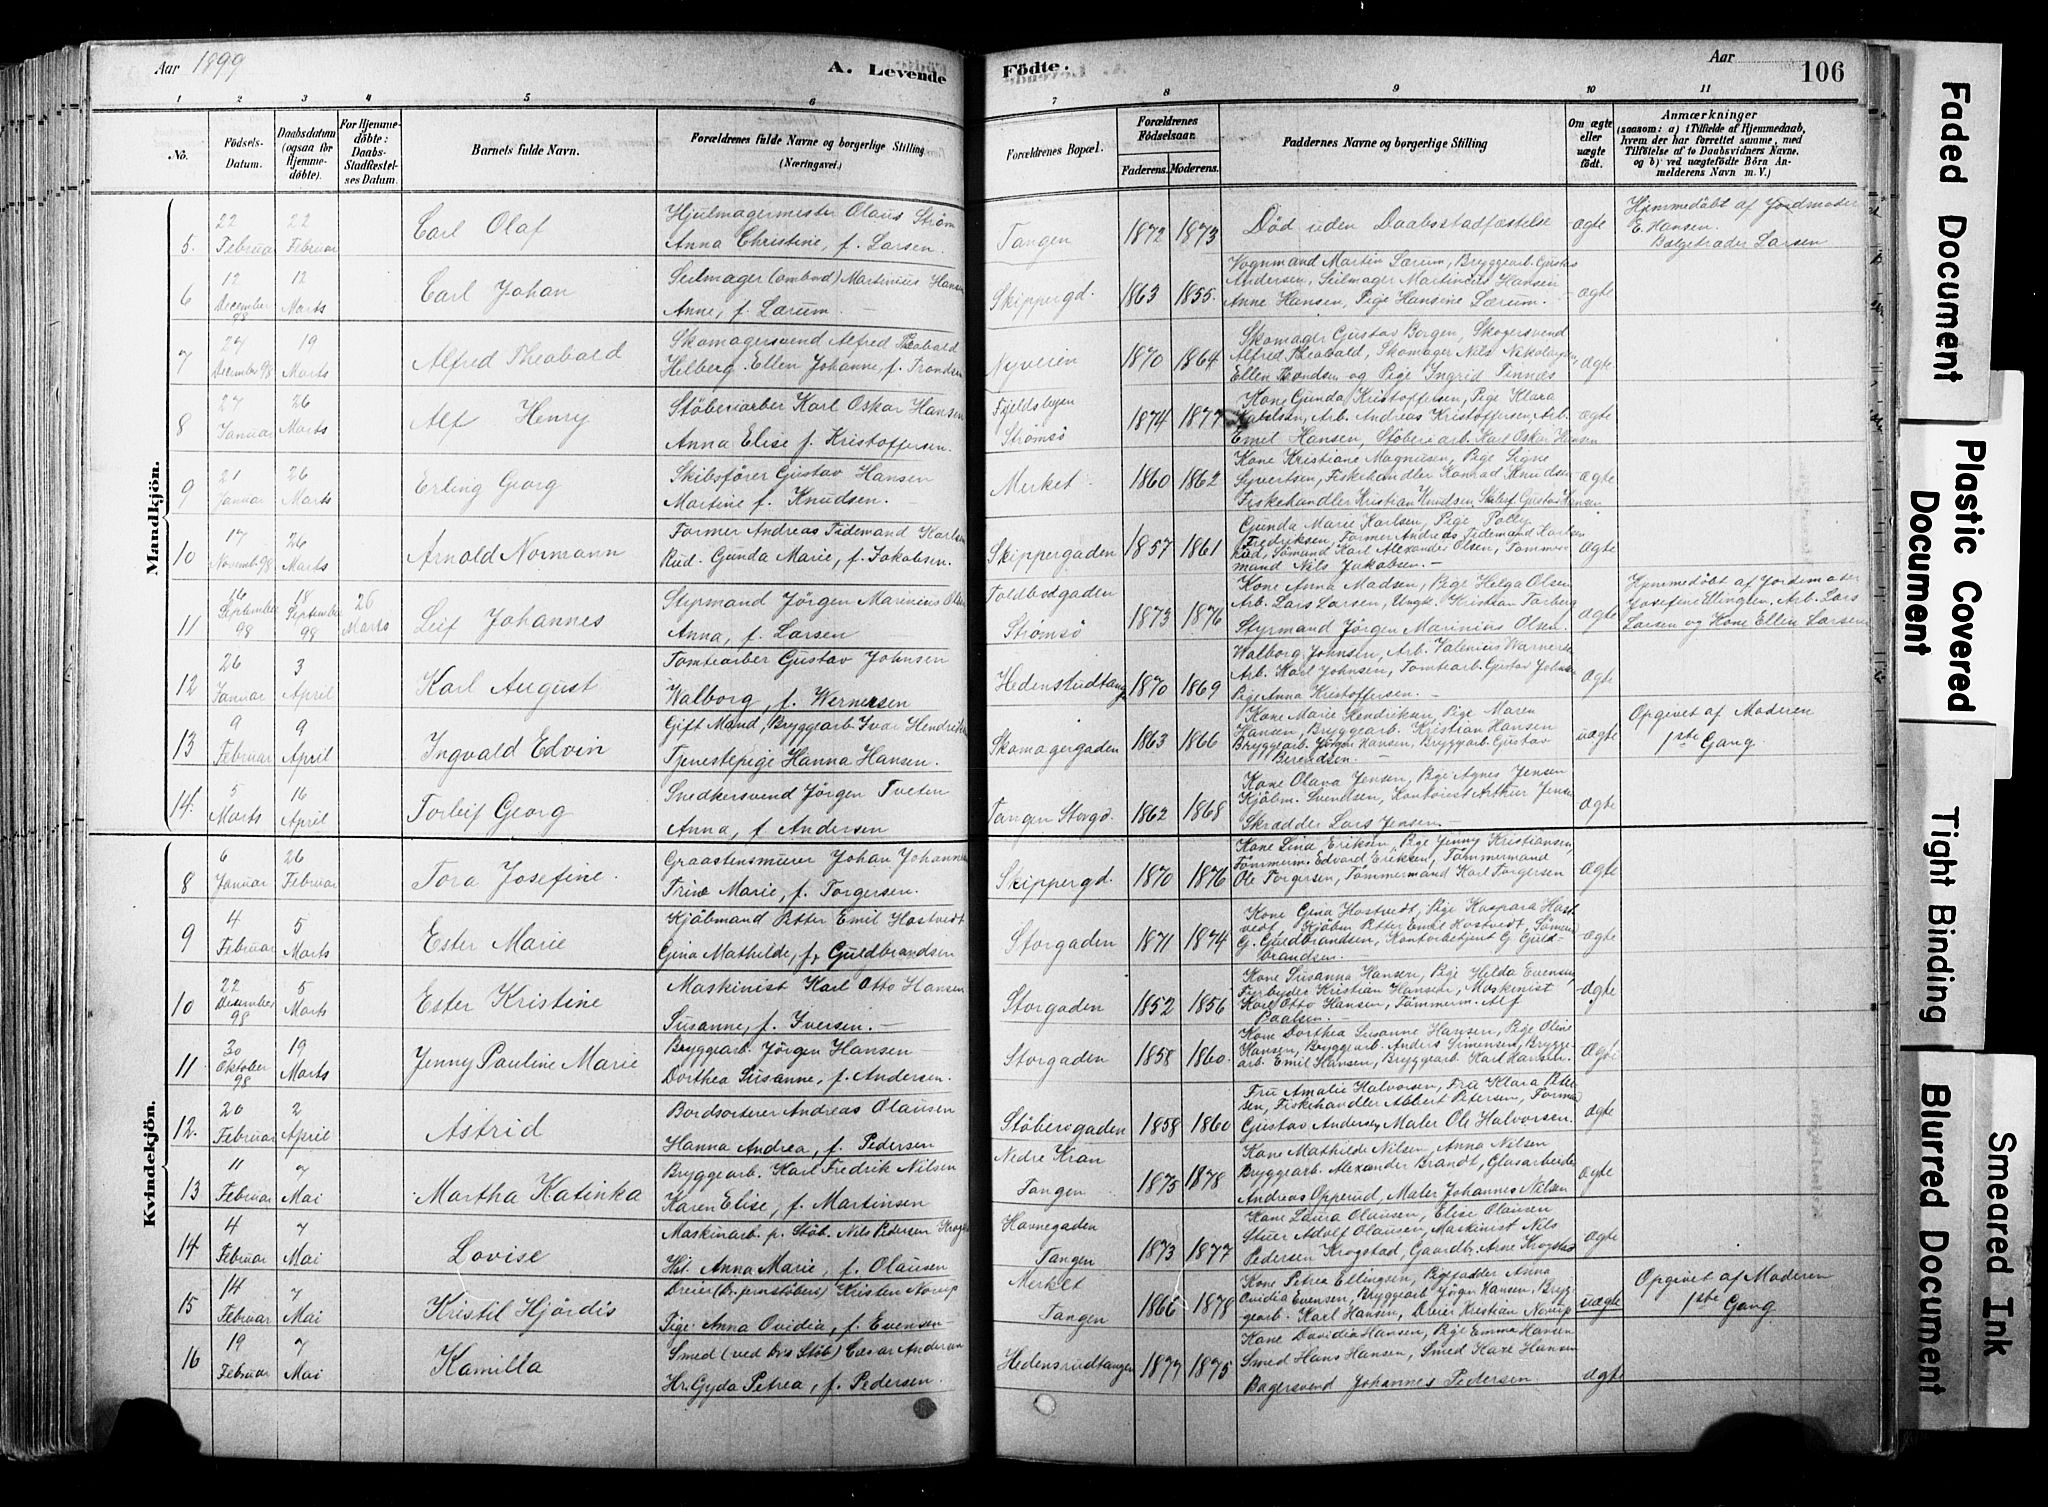 Aar 1899
A. Levende
Födte.
Aar
106
1 2 3 4 5 6 7 8 9 10 11
No.
Födsels-Datum.
Daabsdatum (ogsaa for Hjemmedöbte).
For Hjemmedöbte: Daabs-Stadfæstelses Datum.
Barnets fulde Navn.
Forældrenes fulde Navne og borgerlige Stilling (Næringsvei.)
Forældrenes Bopæl.
Forældrenes Födselsaar.
Faderens. Moderens.
Faddernes Navne og borgerlige Stilling
Om ægte eller uægte födt.
Anmærkninger
(saasom: a) i Tilfælde af Hjemmedaab, hvem der har forrettet samme, med Tilföielse af to Daabsvidners Navne, og b) ved uægtefödte Börn Anmelderens Navn m. V.)
Mandkjön.
5. 22 Februar 22 Februar Carl Olaf Hjulmagermester Olaus Ström
Anna Christine, f. Larsen. Tangen 1872 1873 Död uden Daabsstadfæstelse ægte Hjemmedöbt af Jordmoder
E. Hansen.
Larsen
6 12 December 98 12 Marts Carl Johan Seilmager (ombord) Martinius Hansen
Anne, f. Lærum. Skippergd. 1863 1855. Vognmand Martin Lærum, Bryggearb. Gustav
Andersen, Seilmager Martinius Hansen
Anne Hansen, Pige Hansine Lærum. ægte
7 27 December 98 19 Marts Alfred Theobald Skomagersvend Alfred Theobald
Helberg. Ellen Johanne, f. Trondsen Nyveien 1870 1864 Skomager Gustav Borgen,
Alfred Theobald, Skomager Nils Nikolaysen,
Ellen Trondsen og Pige Ingrid Tinnæs ægte
8 27 Januar 26 Marts Alf Henry Stöberiarber Karl Oskar Hansen
Anna Elise f. Kristoffersen. Fjeldsbyen
Strömsö 1874 1877 Kone Gunda Kristoffersen, Pige Klara
Arb. Andreas Kristoffersen, Arb.
Emil Hansen, Stöberiarb. Karl Oskar Hansen ægte
9 21 Januar 26 Marts Erling Georg Skibsförer Gustav Hansen
Martine f. Knudsen. Merket 1860 1862 Kone Kristiane Magnusen, Pige Signe
Syvertsen, Fiskehandler Konrad Knudsen
Fiskehandler Kristian Knudsen, Skibsf. Gustav Hansen ægte
10 17 Novemb. 98 26 Marts Arnold Normann Former Andreas Tidemand Karlsen
Rud. Gunda Marie, f. Jakobsen. Skippergaden 1857 1861 Gunda Marie Karlsen, Pige Polly
Fredriksen, Former Andreas Tidemand Karlsen
Rud, Sömand Karl Alexander Olsen, Tömmer
mand Nils Jakobsen. ægte
11 September 98 18 September 98 26 Marts Leif Johannes Styrmand Jörgen Marinius Olsen
Anna, f. Larsen Toldbodgaden
Strömsö 1873 1876 Kone Anna Madsen, Pige Helga Olsen
Arb. Lars Larsen, Ungk. Kristian Torberg
Styrmand Jörgen Marinius Olsen. ægte Hjemmedöbt af Jordemoder
Josefine Ellingsen, Arb. Lars
Larsen og Kone Ellen Larsen
12 26 Januar 3 April Karl August Tomtearber Gustav Johnsen
Walborg, f. Wernersen Hedenstudtangen 1870 1869 Walborg Johnsen, Arb. Valenius
Arb. Karl Johnsen, Tomtearb. Gustav Johnsen
Pige Anna Kristoffersen. ægte
13 9 Februar 9 April Ingvald Edvin Gift Mand, Bryggearb Ivar Hendriksen
Tjenestepige Hanna Hansen. Skomagergaden 1863 1866 Kone Marie Hendriksen, Pige Maren
Hansen, Bryggearb. Kristian Hansen
Bryggearb. Jörgen Hansen, Bryggearb. Gustav
Berendsen. uægte Opgivet af Moderen
1ste Gang
14. 5 Marts 16 April Torleif Georg Snedkersvend Jörgen Tveten
Anna, f. Andersen Tangen Storgd. 1862 1868 Kone Olava Jensen, Pige Agnes Jensen
Kjöbm. Svendsen, Kontorist Arthur Jensen
Skrædder Lars Jensen. ægte
Kvindekjön.
8 6 Januar 26 Februar Tora Josefine. Graastensmurer Johan Johannesen
Trine Marie, f. Torgersen. Skippergd. 1870 1876 Kone Lina Eriksen, Pige Jenny Kristiansen,
Tömmerm. Edvard Eriksen, Tömmermand
Ole Torgersen, Tömmermand Karl Torgersen ægte
9 4 Februar 5 Marts Ester Marie Kjöbmand Petter Emil Hostvedt
Gina Mathilde, f. Guldbrandsen Storgaden 1871 1874 Kone Gina Hostvedt, Pige Kaspara Host
vedt, Kjöbm Petter Emil Hostvedt, Sömand
G. Guldbrandsen, Kontorbetjent G Guld-
brandsen. ægte
10 22 December 98 5 Marts Ester Kristine Maskinist Karl Otto Hansen
Susanne, f. Iversen. Storgaden 1852 1856 Kone Susanna Hansen, Pige Hilda Evensen
Fyrböder Kristian Hansen, Maskinist
Karl Otto Hansen, Tömmerm. Alf
Paalsen. ægte
11. 30 Oktober 98 19 Marts Jenny Pauline Marie Bryggearb. Jörgen Hansen
Dorthea Susanne, f. Andersen. Storgaden 1858 1860. Kone Dorthea Susanne Hansen, Pige Oline
Hansen, Bryggearb. Anders Simensen, Brygge-
arb. Emil Hansen, Bryggearb. Karl Hansen. ægte
12. 20 Februar 2 April Astrid Bordsorterer Andreas Olausen
Hanna Andrea, f. Pedersen Stöberigaden 1858 1860 Fru Amalie Halvorsen, Fru Klara Peter-
sen, Fiskehandler Albert Petersen, Former
Gustav Andersen, Maler Ole Halvorsen. ægte
13 11 Februar 7 Mai Martha Katinka Bryggearb. Karl Fredrik Nilsen
Karen Elise, f. Martinsen Nedre Kran
Tangen 1875 1878 Kone Mathilde Nilsen, Anna Nilsen
Bryggearb. Alexander Brandt, Glasarbeider
Andreas Opperud, Maler Johannes Nilsen ægte
14 4 Februar 7 Mai Lovise Maskinarb. p. Stöb. Nils Pedersen Krogstad
Hst. Anna Marie, f. Olausen Havnegaden
Tangen 1873 1877 Kone Laura Olausen, Elise Olausen
Stuer Adolf Olausen, Maskinist Nils
Pedersen Krogstad, Gaardbr. Arne Krogstad ægte
15 14 Februar 7 Mai Kristil Hjördis Dreier (Dr. jernstöberi) Kristen Norup
Pige. Anna Ovidia, f. Evensen Merket
Tangen 1866 1878 Kone Petra Ellingsen, Anna
Ovidia Evensen, Bryggearb Jörgn Hansen, Bryg-
gearb. Karl Hansen, Dreier Kristian Norup uægte Opgivet af Moderen
1ste Gang
16 19 Februar 7 Mai Kamilla Smed (ved Drs Stöb) Cæsar Andersen
Hr. Gyda Petrea, f. Pedersen. Hedensrudtangen 1877 1875 Kone Davidia Hansen, Pige Emma Hansen
Smed Hans Hansen, Smed Kaze Hansen
Bagersvend Johannes Pedersen ægte
Faded Document
Plastic Covered Document
Tight Binding
Blurred Document
Smeared Ink